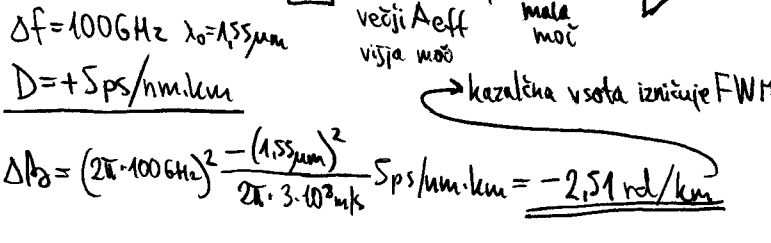 Δf=100GHz λ₀=1,55μm
večji Aeff
višja moč
mala
moč
D=+5ps/nm.km
kazalčna vsota izničuje FWM
Δβ=(2π·100GHz)² −(1,55μm)²/2π·3·10⁸m/s 5ps/nm.km = −2,51 rd/km